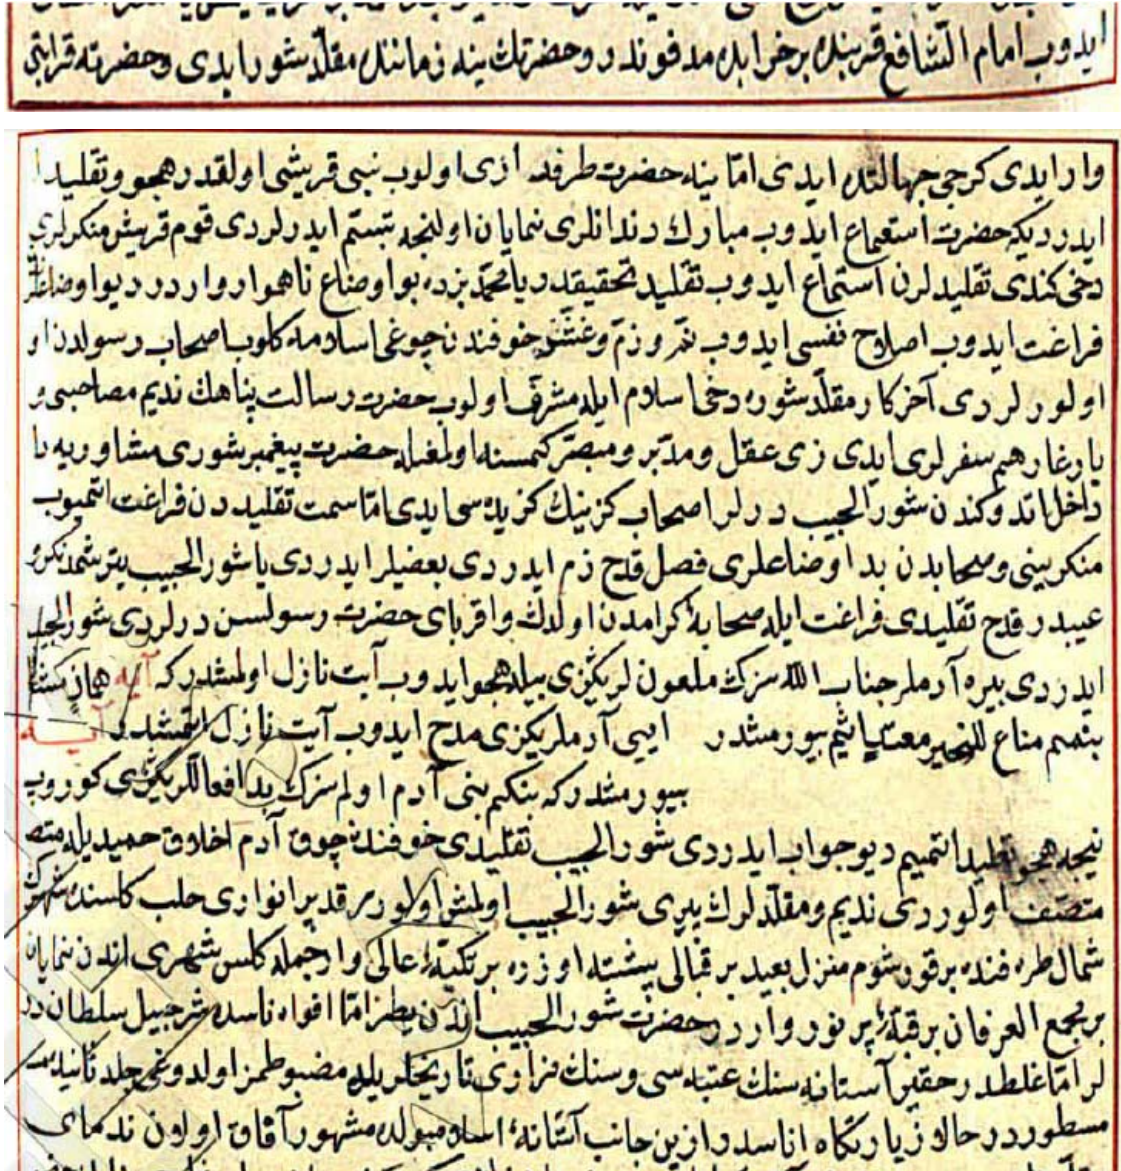 ایدوب امام الشافع قربنده بر خرابه ده مدفوندر و حضرتك ینه زماننده مقلد شور ایدی و حضرته قرابتی
وار ایدی كرچی جهالتده ایدی اما ینه حضرت طرفدارى اولوب نبی قریشی اولقدر هجو و تقلید
ایدردیكه حضرت استماع ایدوب مبارك دندانلری نمایان اولنجه تبسم ایدرلردی قوم قریش منكرلری
دخی كندی تقلیدلرن استماع ایدوب تقلید تحقیقدر یا محمد بزده بو اوضاع ناهموار واردر دیو اوضاعلر
فراغت ایدوب اصلاح نفسی ایدوب و زم و خوفندن چوغی اسلامه كلوب اصحاب رسولدن
اولورلردی آخر كار مقلد شور دخی اسلام ایله مشرف اولوب حضرت رسالت پناهك ندیم مصاحبی و
یار غار هم سفرلری ایدی زی عقل و مدبر و مبصر كمسنه اولمغله حضرت پیغمبر شوری مشاوریه
داخل ایدوكندن شور الحبیب درلر اصحاب كزینك كزیده سی ایدی اما سمت تقلیددن فراغت اتمیوب
منكرینی و صحابه دن بد اوضاعلری فصل قدح زم ایدردی بعضیلر ایدردی یا شور الحبیب یتر شمدنكرو
عیبدر قدح تقلیدی فراغت ایله صحابۀ كرامدن اولدك و اقربای حضرت رسولسن درلردی شور الحبیب
ایدردی بیره آدملر جناب الله سزك ملعونلریكزی بیله هجو ایدوب آیت نازل اولمشدركه آیه هماز مشاء
بنمیم مناع للخیر معتد اثیم بیورمشدر ایی آدملریكزی مدح ایدوب آیت نازل اتمشدر آیه
بیورمشدركه بنكم بنی آدم اولم سزك بد افعاللریكزی كوروب
نیجه هجو تقلید اتمییم دیو جواب ایدردی شور الحبیب تقلیدی خوفندن چوق آدم اخلاق حمیده یله
متصف اولوردی ندیم و مقلدلرك پیری شور الحبیب اولمش اولور قبر پر انواری حلب كلسنده شهرك
شمال طرفنده بر قورشوم منزل بعید بر قبالی پشته اوزره بر تكیۀ عالی وار جمله كلس شهری اندن نمایان
بر مجمع العرفان بر قبۀ پر نور واردر حضرت شور الحبیب انده یطر اما افواه ناسده شرحبیل سلطان در
لر اما غلطدر حقیر آستانه سنك عتبه سی و سنك مزاری تاریخلریله مضبوطمز اولدوغی جلد ثانیده
مسطوردر حالا زیارتكاه اناسدر ازین جانب آستانۀ اسلامبولده مشهور آفاق اولان ندمای